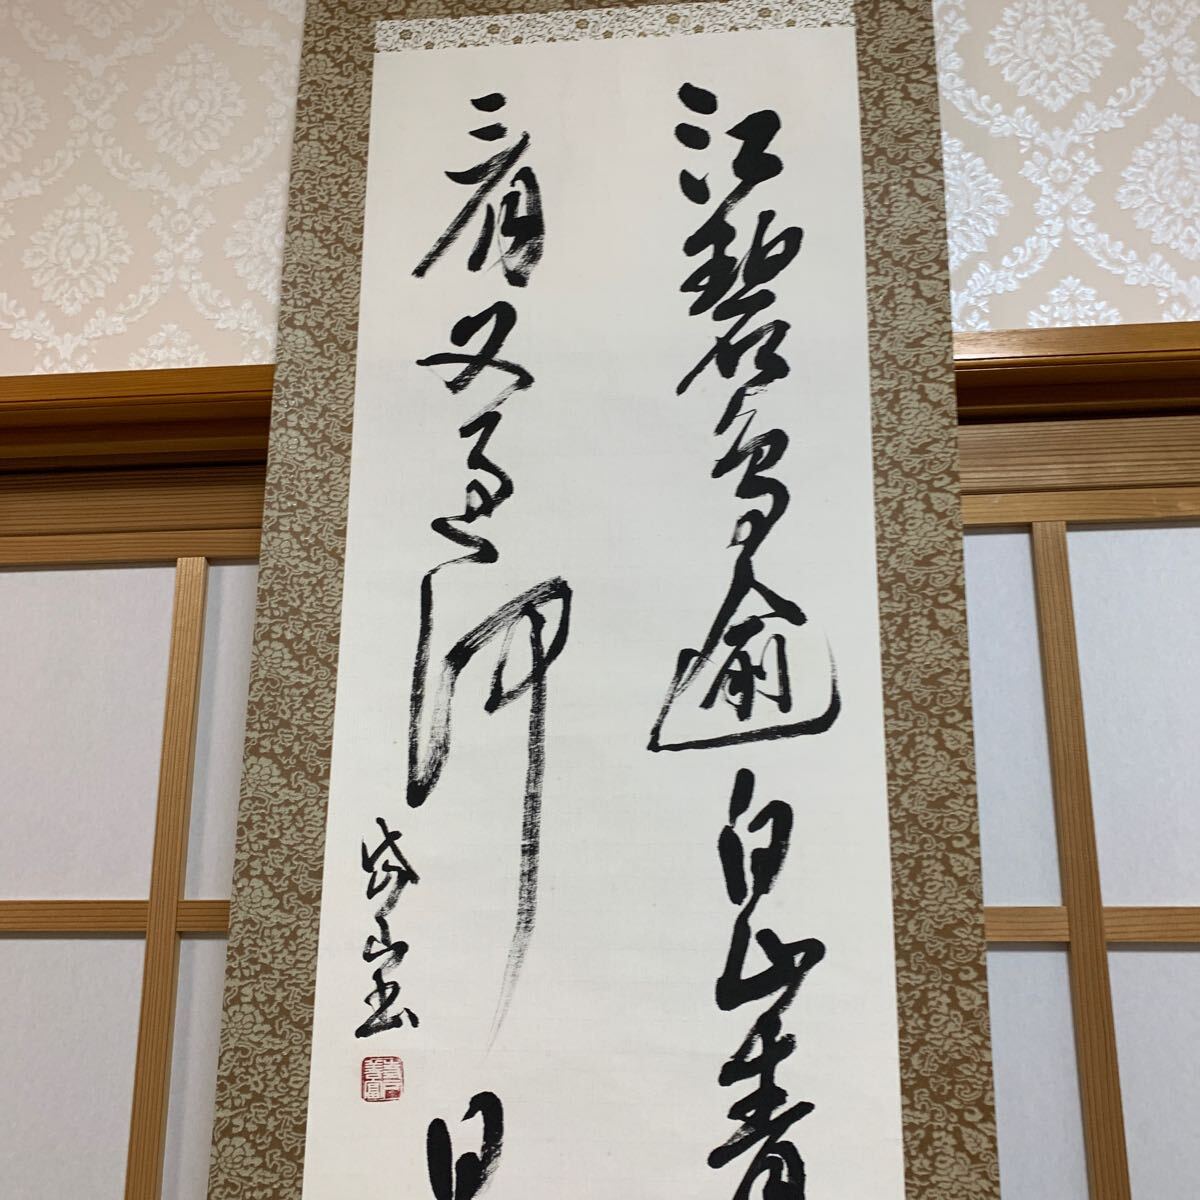 江碧鳥逾白山青
看又過何日
岱書